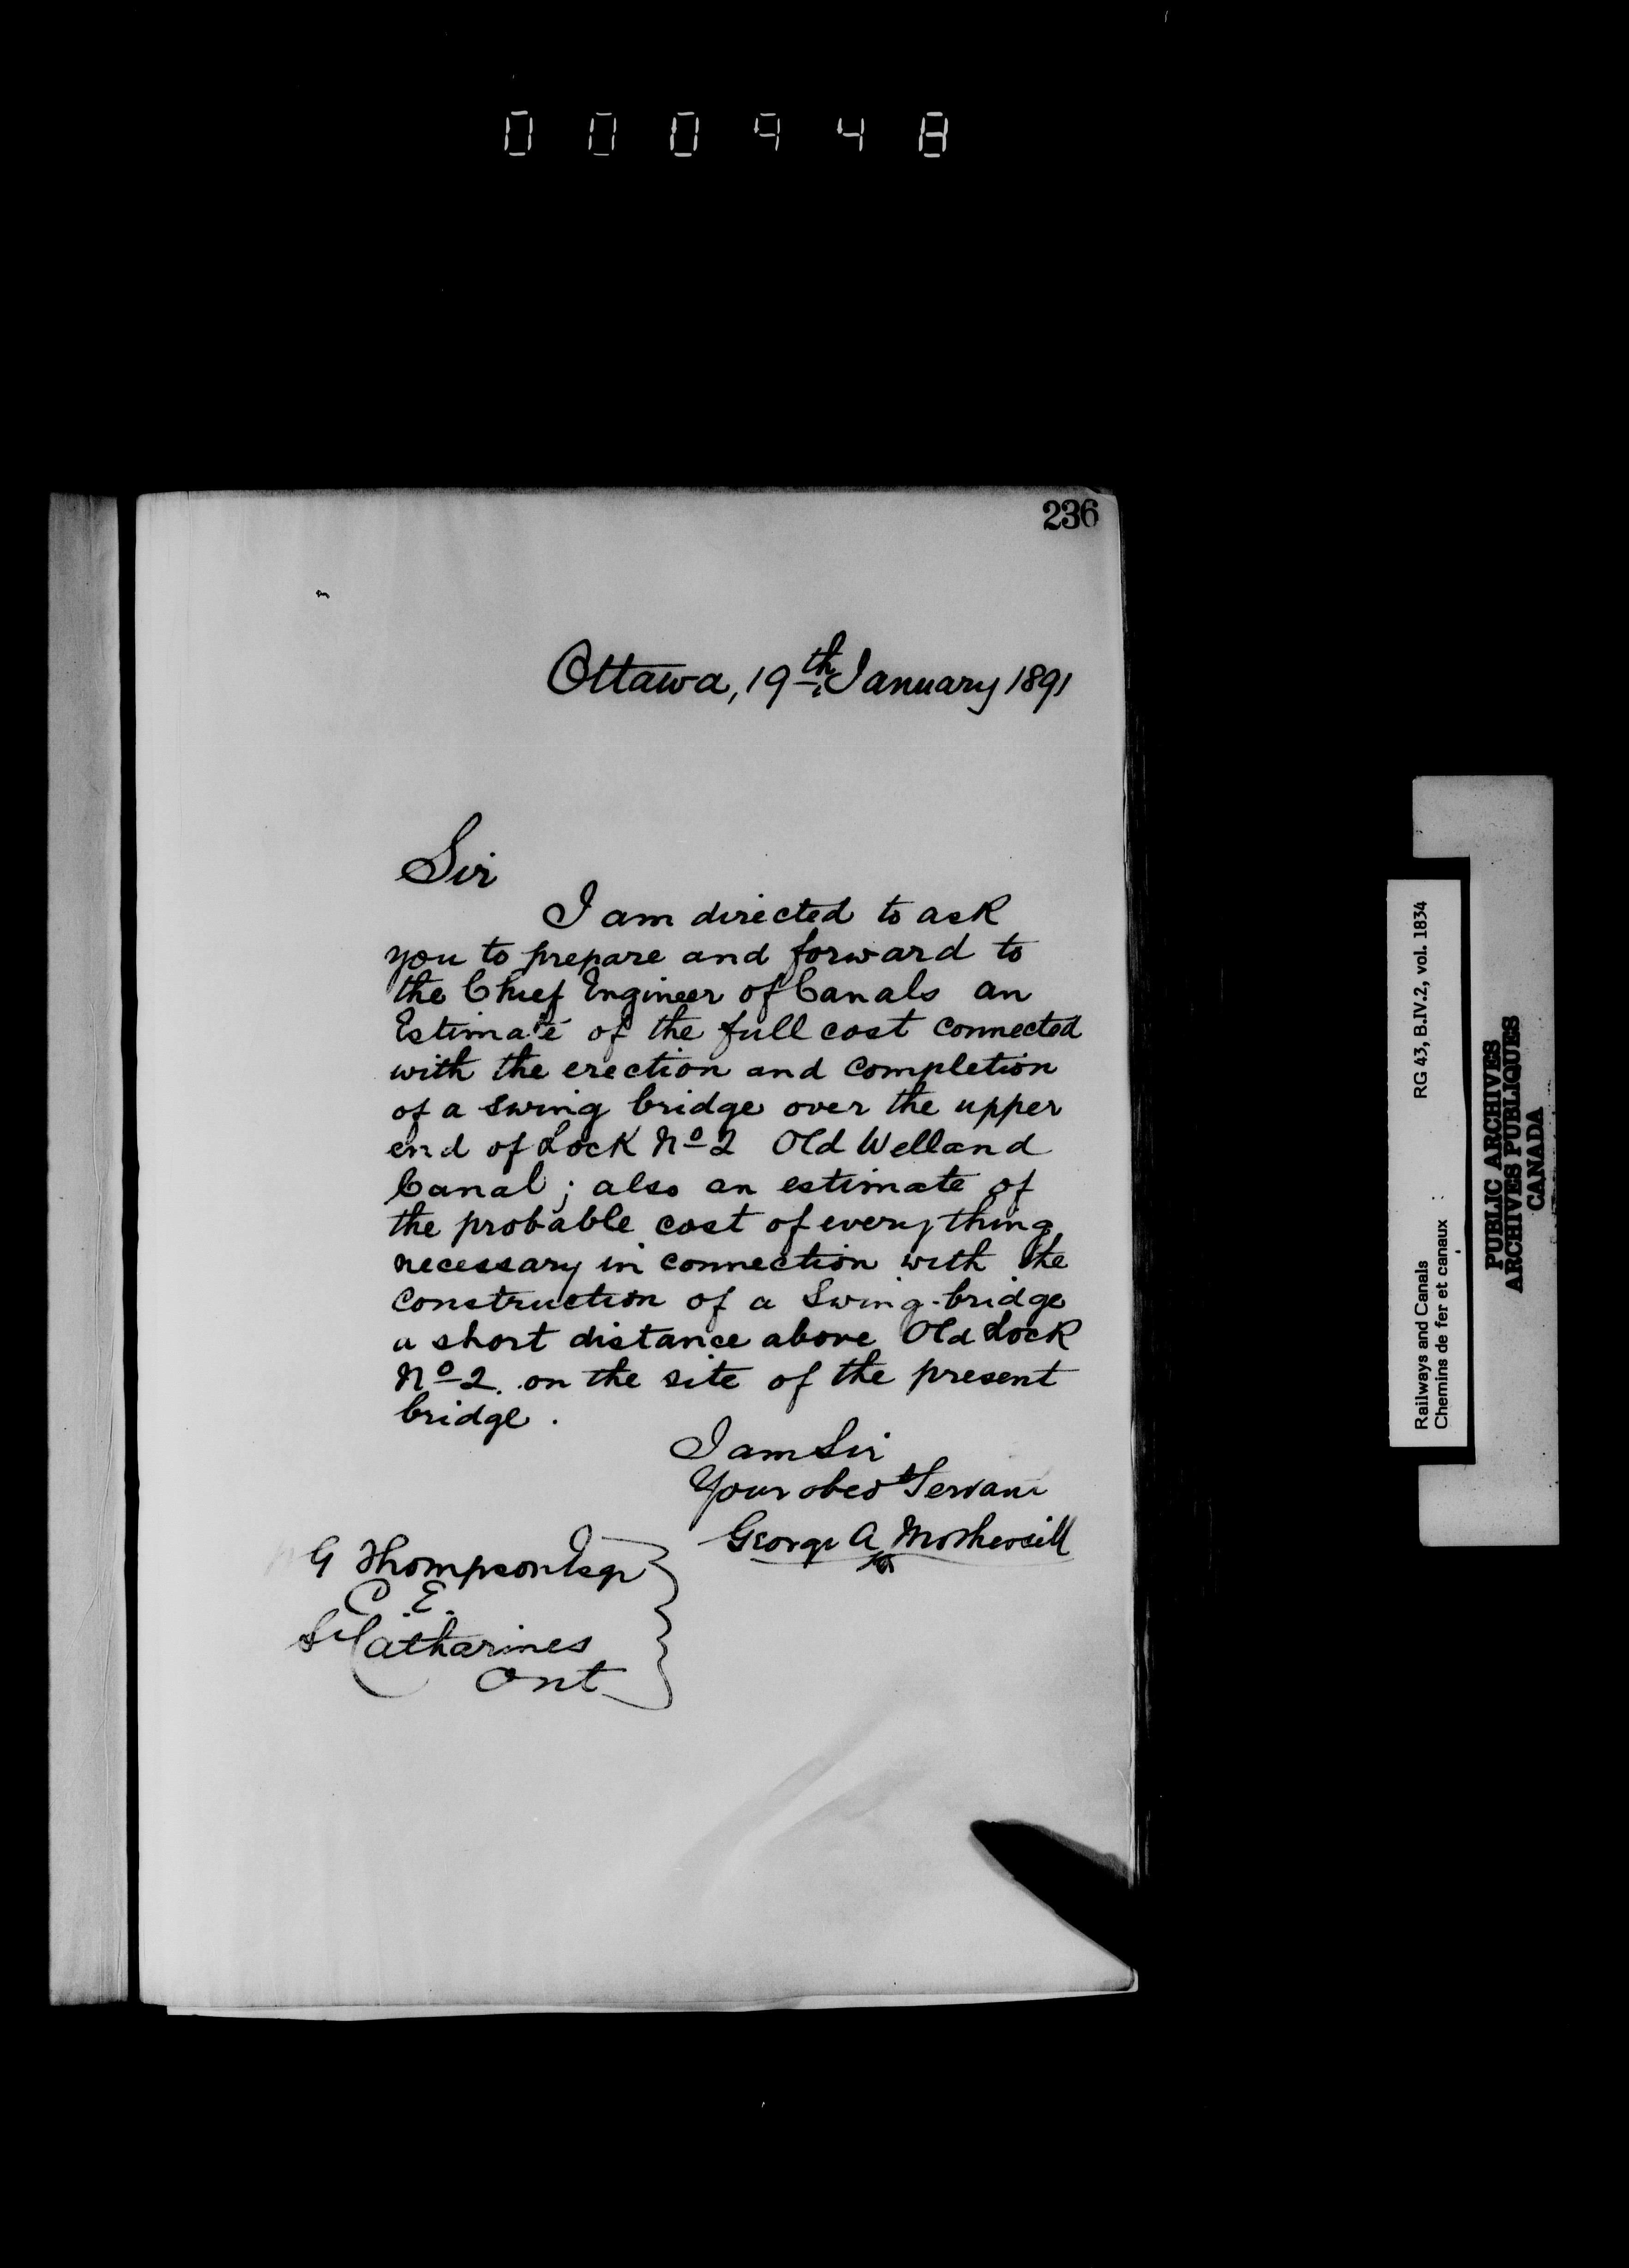 000948
236
Ottawa, 19th January 1891
Sir
I am directed to ask
you to prepare and forward to
the Chief Engineer of Canals an
Estimate of the full cost connected
with the erection and completion
of a swing bridge over the upper
end of Lock No 2 Old Welland
Canal; also an estimate of
the probable cost of everything
necessary in connection with the
construction of a Swing-bridge
a short distance above Old Lock
No 2. on the site of the present
bridge.
I am Sir
Your obedt Servant
George A Mothersill
G Thompson Esqr
C. E.
St Catharines
Ont
Railways and Canals RG 43, B.IV.2, vol. 1834
Chemins de fer et canaux
PUBLIC ARCHIVES
ARCHIVES PUBLIQUES
CANADA